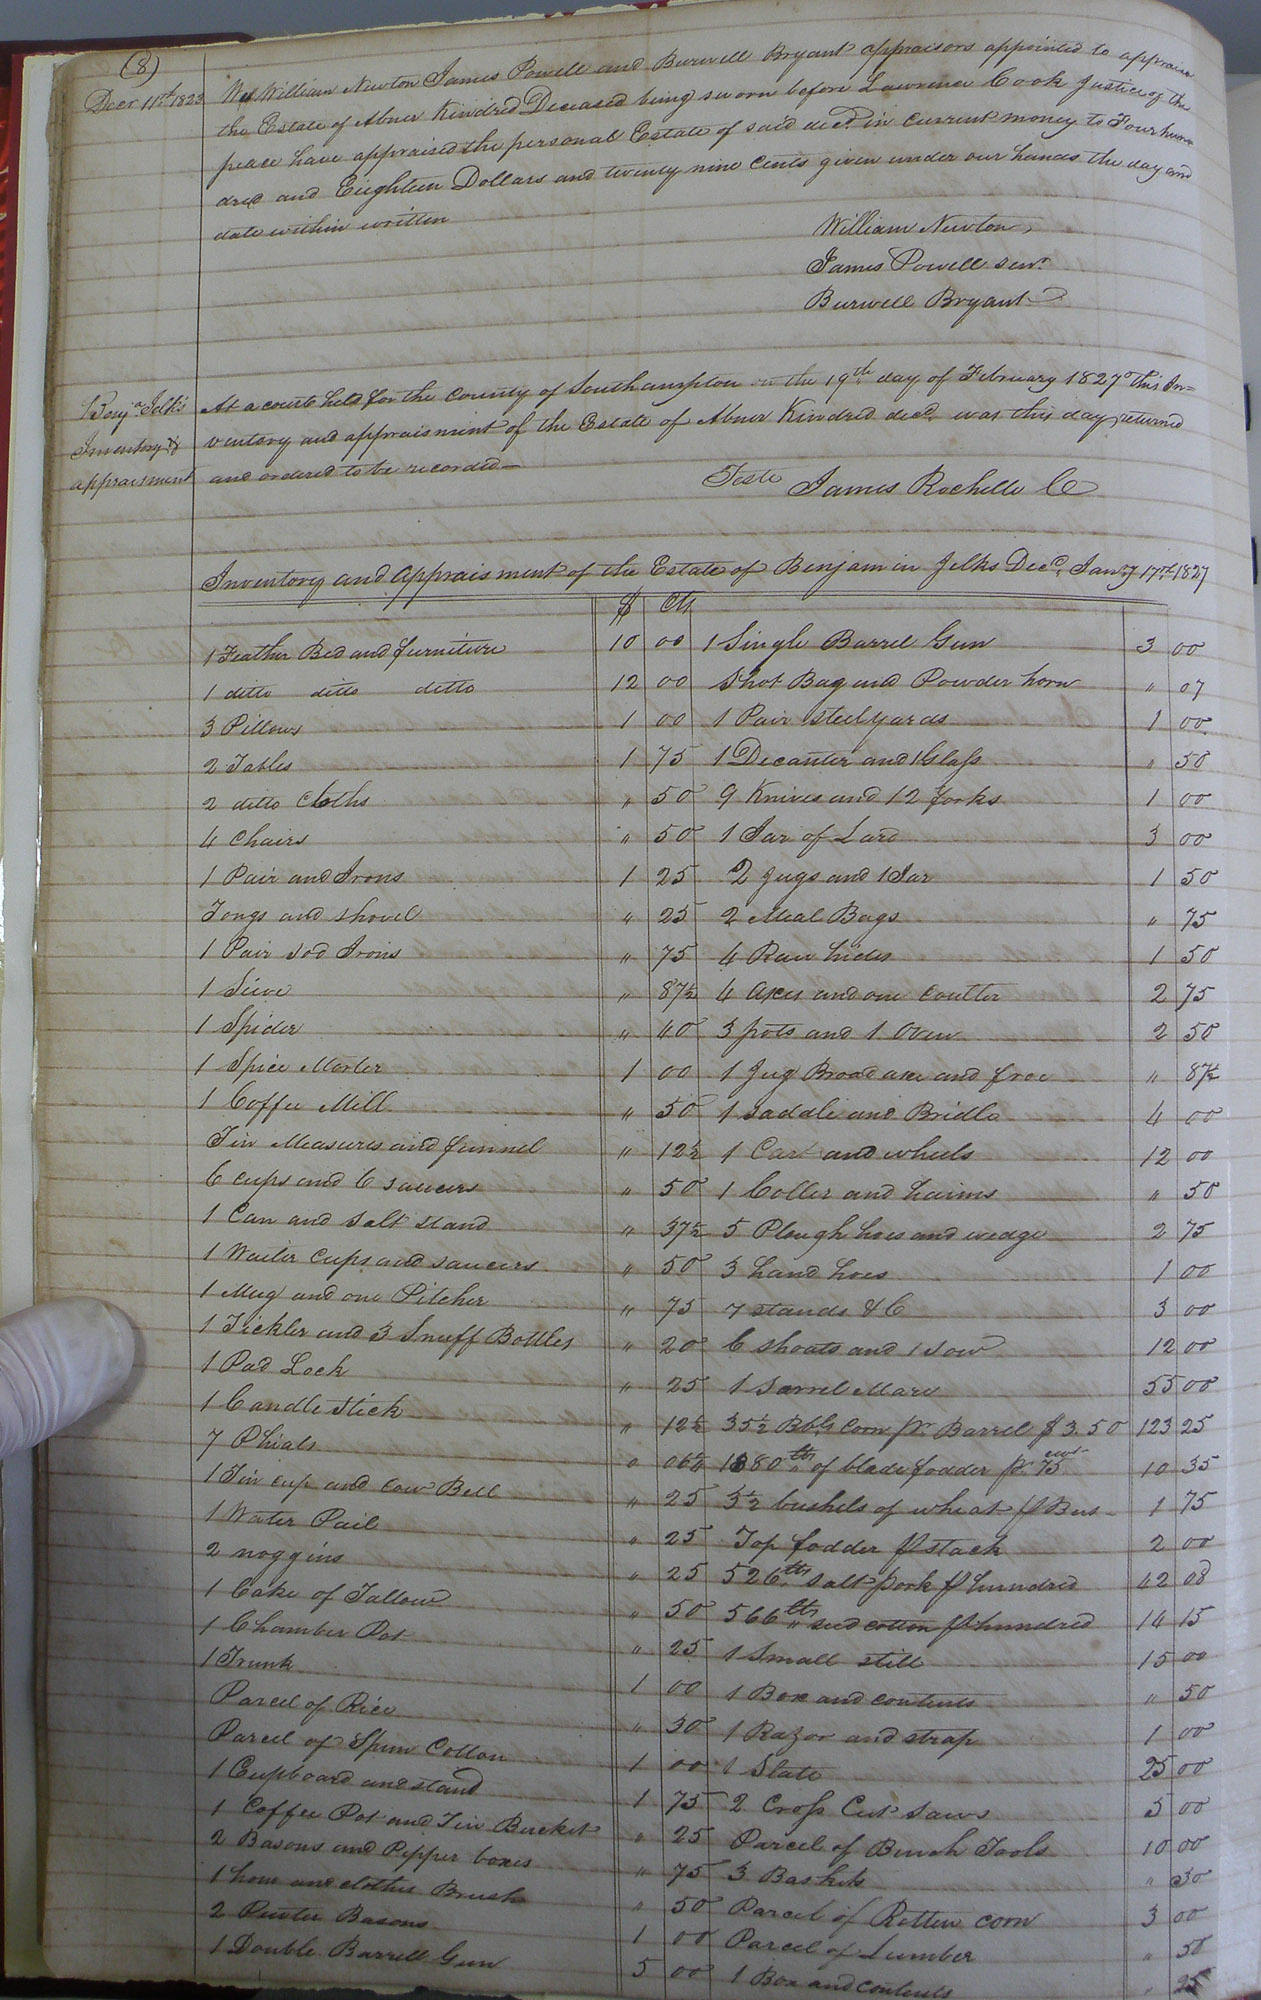 (8)
Decr 11th 1823
We William Newton James Powell and Burwell Bryant appraisors appointed to appraise
the Estate of Abner Kindred Deceased being sworn before Lawrence Cook Justice of the
peace have appraised the personal Estate of said decd. in current money to Four hun
dred and Eighteen Dollars and twenty nine cents given under our hands the day and
date within written
William Newton
James Powell senr.
Burwell Bryant
Benja. Jelks
Inventory &
appraisment
At a court held for the County of Southampton on the 19th day of February 1827 This In=
ventory and appraisment of the Estate of Abner Kindred decd. was this day returned
and ordered to be recorded
Teste James Rochelle C
Inventory and Appraisment of the Estate of Benjamin Jelks Decd. Jany 17th 1827
$ Cts
1 Feather Bed and furniture 10 00 1 Single Barrel Gun 3 00
1 ditto ditto ditto 12 00 Shot Bag and Powder horn " 07
3 Pillows 1 00 1 Pair steelyards 1 00
2 Tables 1 75 1 Decanter and 1 Glass " 50
2 ditto Cloths " 50 9 Knives and 12 forks 1 00
4 Chairs " 50 1 Jar of Lard 3 00
1 Pair and Irons 1 25 2 Jugs and 1 Jar 1 50
Tongs and shovel " 25 2 Meal Bags " 75
1 Pair sod Irons " 75 4 Raw hides 1 50
1 Sieve " 87½ 4 axes and one coulter 2 75
1 Spider " 40 3 pots and 1 Oven 2 50
1 Spice Morter 1 00 1 Jug Broad axe and froe " 87½
1 Coffee Mill " 50 1 saddle and Bridle 4 00
Tin Measures and funnel " 12½ 1 Cart and wheels 12 00
6 cups and 6 saucers " 50 1 Coller and haims " 50
1 Can and salt stand " 37½ 5 Plough hoes and wedge 2 75
1 Waiter cups and saucers " 50 3 hand hoes 1 00
1 Mug and one Pitcher " 75 7 stands &C 3 00
1 Tickler and 3 Snuff Bottles " 20 6 shoats and 1 sow 12 00
1 Pad Lock " 25 1 Sorrel Mare 55 00
1 Candlestick " 12½ 35½ Bbls Corn pr. Barrel $3.50 123 25
7 Phials " 06¼ 1380 lbs of blade fodder pr. 75 cwt 10 35
1 Tin cup and cow Bell " 25 3½ bushels of wheat p Bus 1 75
1 Water Pail " 25 Top fodder p stack 2 00
2 noggins " 25 526 lbs salt pork p hundred 42 08
1 Cake of Tallow " 50 566 lbs seed cotton p hundred 14 15
1 Chamber Pot " 25 1 Small still 15 00
1 Trunk 1 00 1 Box and contents " 50
Parcel of Rice " 30 1 Razor and strap 1 00
Parcel of Spun Cotton 1 00 1 Slate 25 00
1 Cupboard and stand 1 75 2 Cross Cut saws 5 00
1 Coffee Pot and Tin Bucket " 25 Parcel of Bench Tools 10 00
2 Basons and Pepper boxes " 75 3 Baskets " 30
1 hone and clothes Brush " 50 Parcel of Rotten corn 3 00
2 Pewter Basons 1 00 Parcel of Lumber " 50
1 Double Barrell Gun 5 00 1 Box and contents " 25